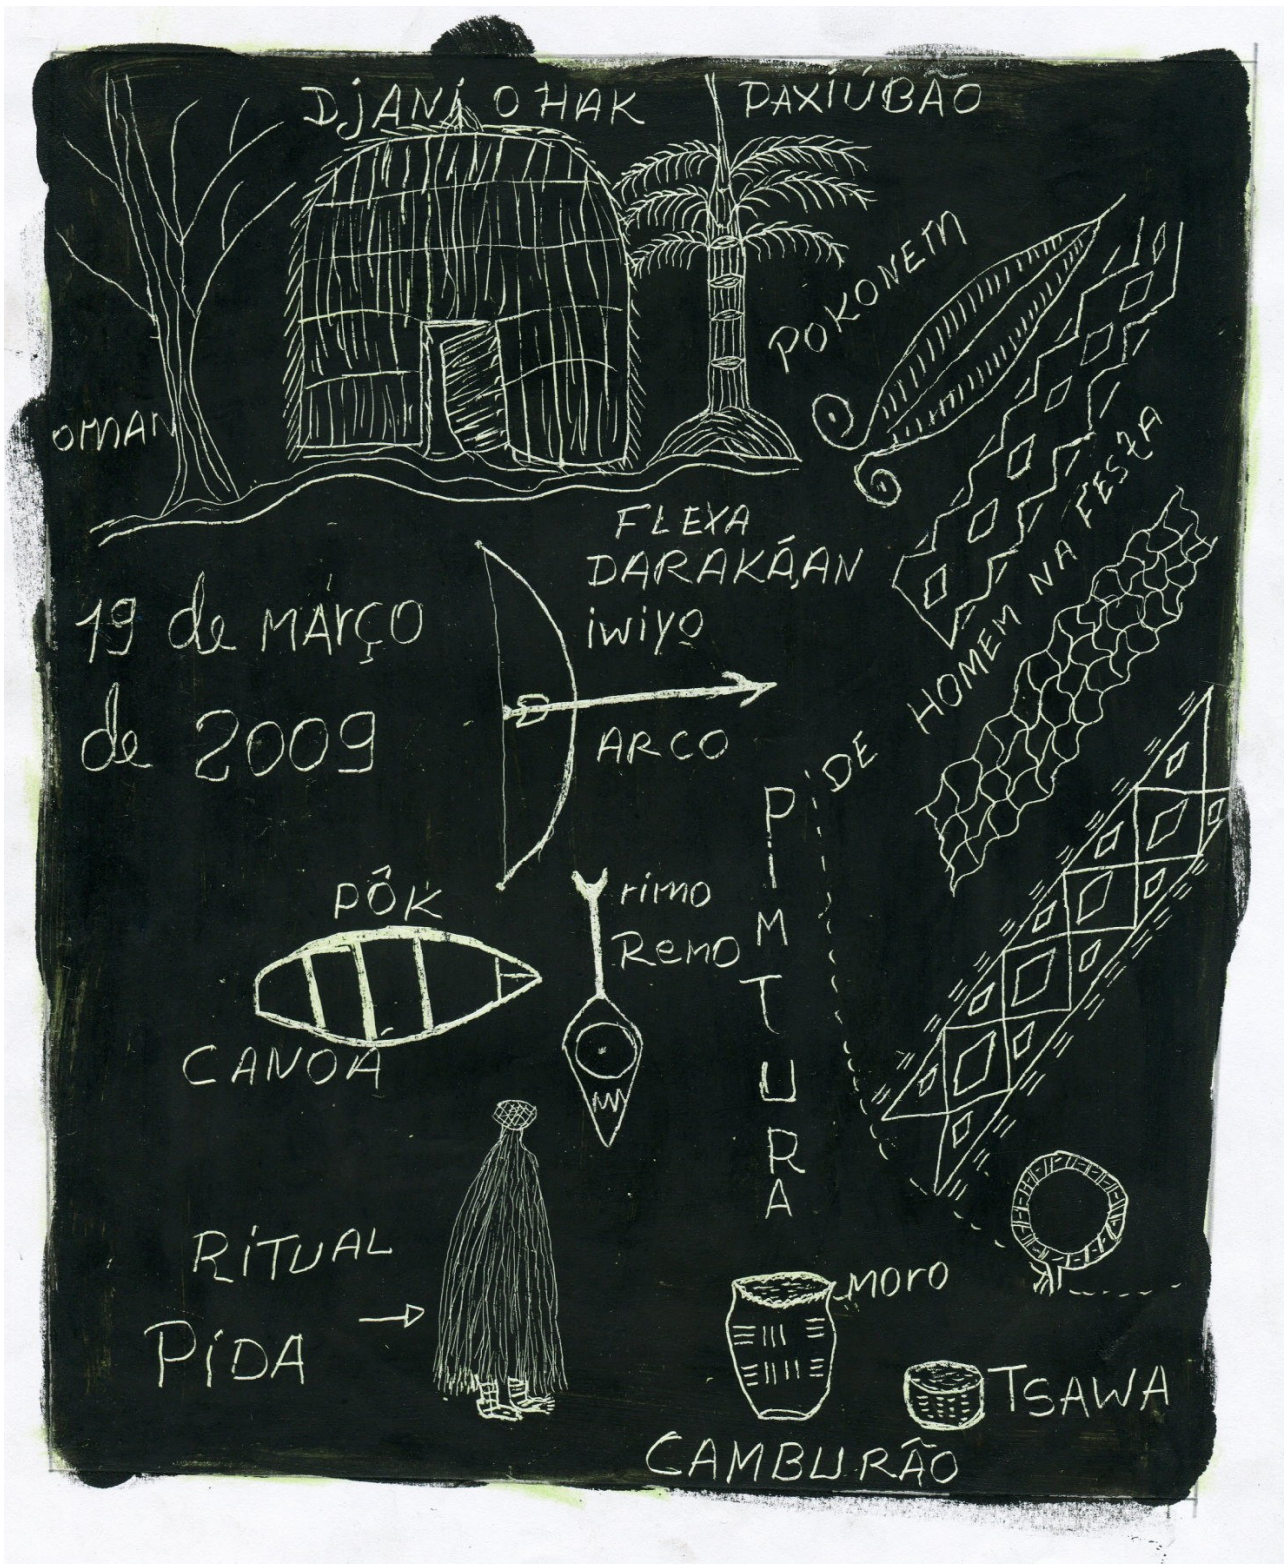 DJANÁ OHAK
PAXIÚBÃO
POKONEM
OMAN
FLEXA
DARAKÁAN
iwiyo
19 de MARÇO
de 2009
ARCO
PIMTURA
DE HOMEM NA FESTA
PÔK
CANOA
rimo
Remo
RITUAL
PIDA
MORO
TSAWA
CAMBURÃO